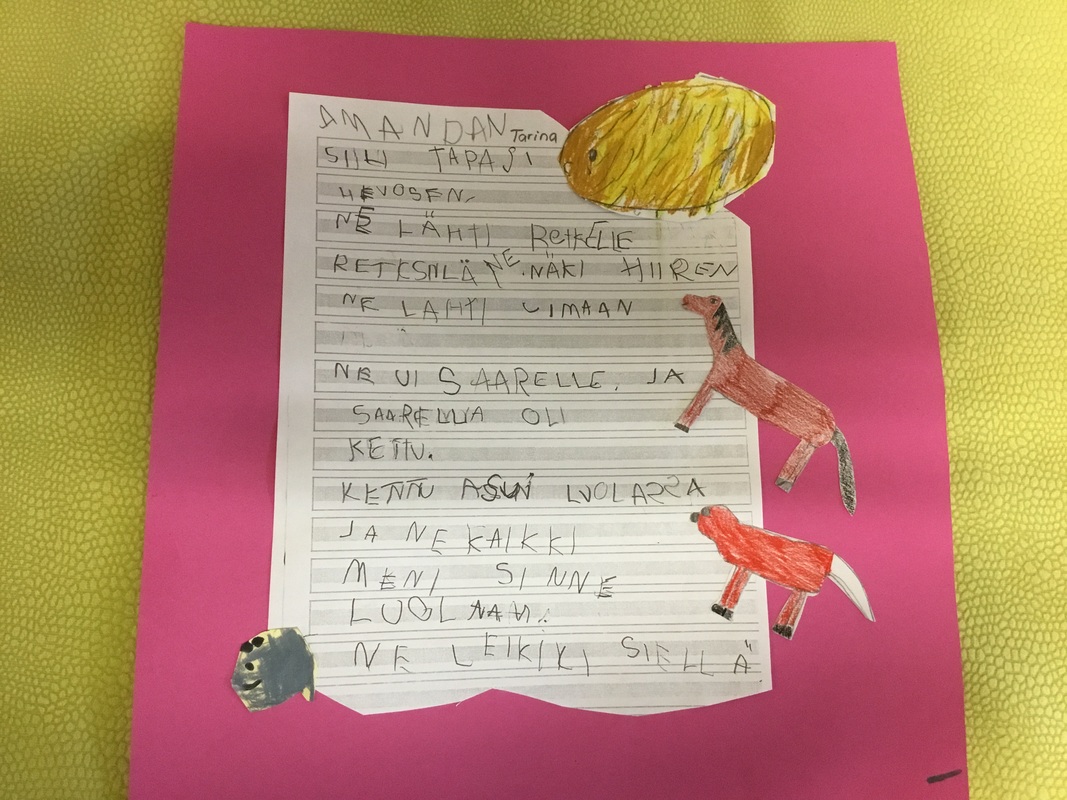 AMANDAN Tarina
SIILI TAPASI
HEVOSEN.
NE LÄHTI RETKELLE
RETKSIILÄ NE NÄKI HIIREN
NE LÄHTI UIMAAN
NE UI SAARELLE. JA
SAARELLA OLI
KETTU.
KETTU ASUI LUOLASSA
JA NE KAIKKI
MENI SINNE
LUOLAAN.
NE LEIKIKI SIELLÄ